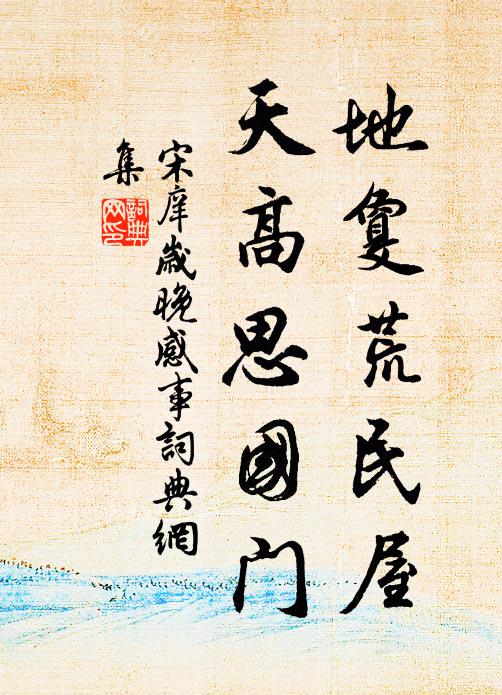 地敻荒民屋
天高思國門
宋庠歲晚感事詞典網
集
詞典
网印